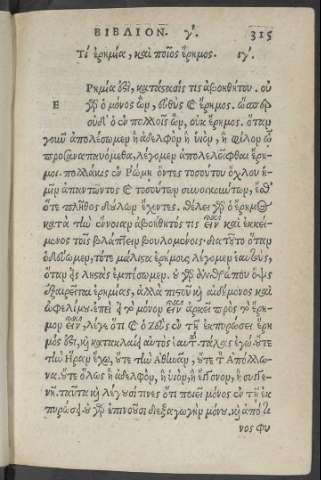 ΒΙΒΛΙΟΝ. γ'. 315
Τί ἐρημία, καὶ ποῖος ἔρημος. ιγ'.
Ε ρημία ὅξὶ, κατάστασίς τις ἀβοηθήτου. οὐ
γὸ ὁ μόνος ὢν, εὐθὺς καὶ ἔρημος. ὥσπερ
οὐδὶ ὁ ἐν πολλοῖς ὢν, οὐκ ἔρημος. ὅταν
γοιῦ ἀπολέσωμεν ἢ ἀδελφὸν ἢ υἱὸν, ἢ φίλον ᾧ
προσαναπαυόμεθα, λέγομεν ἀπολελεῖφθαι ἔρη-
μοι. πολλάκις ἐν Ῥώμῃ ὄντες τοσούτου ὄχλου ἡ-
μῖν ἀπαντῶντος καὶ τοσούτων συνοικούντων, ἔσθ'
ὅτε πλῆθος δούλων ἔχοντες. θέλει γὸ ὁ ἔρημος
κατὰ τὴν ἔννοιαν ἀβοήθητός τις εἶναι καὶ ἐκκεί-
μενος τοῖς βλάπτειν βουλομένοις. διὰ τοῦτο ὅταν
ὁδεύωμεν, τότε μάλιστα ἐρήμους λέγομεν ἑαυτοὺς,
ὅταν εἰς λῃστὰς ἐμπέσωμεν. οὐ γὸ ἀνθρώπου ὄψις
ἐξαιρεῖται ἐρημίας, ἀλλὰ πιστοῦ καὶ αἰδήμονος καὶ
ὠφελίμου. ἐπεὶ εἰ τὸ μόνον εἶναι ἀρκεῖ πρὸς τὸ ἔρη-
μον εἶναι, λέγε ὅτι καὶ ὁ Ζεὺς ἐν τῇ ἐκπυρώσει ἔρη
μός ὅξι, καὶ κατακλαίει αὐτὸς ἑαυτοῦ. τάλας ἐγὼ οὔτε
τὴν Ἥραν ἔχω, οὔτε τὴν Ἀθηνᾶν, οὔτε τὸν Ἀπόλλω-
να. οὔτε ὅλως ἢ ἀδελφὸν, ἢ υἱὸν, ἢ ἔκγονον, ἢ συγγε-
νῆ. ταῦτα καὶ λέγουσί τινες ὅτι ποιεῖ μόνος ἐν τῇ ἐκ
πυρώσει. οὐ γὸ ἐπινοοῦσι διεξαγωγὴν μόνου. καὶ ἀπό τι
νος φυ